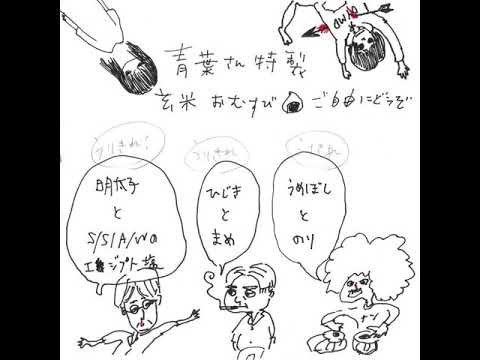 青葉さん特製
玄米 おむすび ご自由にどうぞ
うりきれ!
明太子
と
S/S/A/Wの
エジプト塩
うりきれ
ひじき
と
まめ
うめぼし
と
のり